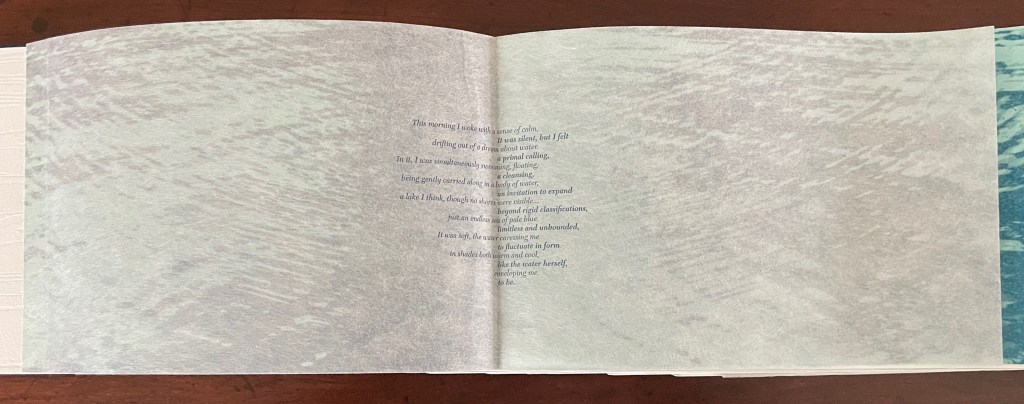 This morning I woke with a sense of calm,
It was silent, but I felt
drifting out of a dream about water.
a primal calling,
In it, I was simultaneously swimming, floating,
a cleansing,
being gently carried along in a body of water,
an invitation to expand
a lake I think, though no shores were visible...
beyond rigid classifications,
just an endless sea of pale blue.
limitless and unbounded,
It was soft, the water caressing me
to fluctuate in form
in shades both warm and cool,
like the water herself,
enveloping me.
to be.